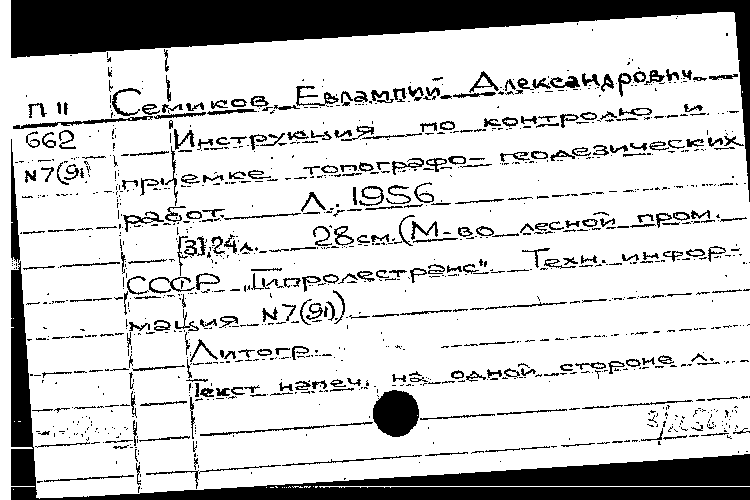 П II Семиков, Евлампий Александрович.
662 Инструкция по контролю и
N7(91) приемке топографо-геодезических
работ. Л., 1956
[3], 24 л. 28 см. (М-во лесной пром.
СССР „Гипролестранс“ Техн. инфор-
мация N7(91))
Литогр.
Текст напеч. на одной стороне л.